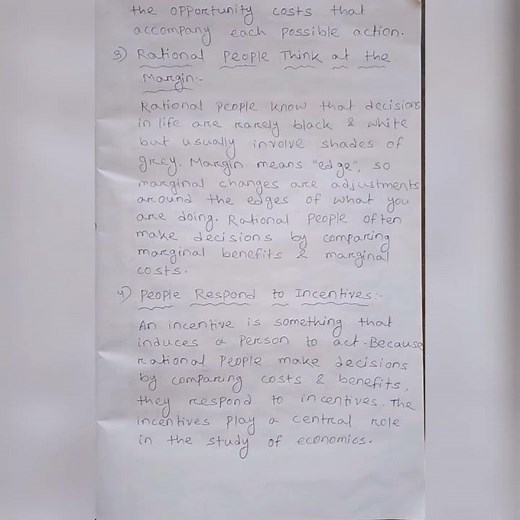 the opportunity costs that
accompany each possible action.
3) Rational People Think at the
Margin:-
Rational People know that decisions
in life are rarely black & white
but usually involve shades of
grey. Margin means "edge", so
marginal changes are adjustments
around the edges of what you
are doing. Rational People often
make decisions by comparing
marginal benefits & marginal
costs.
4) People Respond to Incentives:-
An incentive is something that
induces a Person to act. Because
rational People make decisions
by comparing costs & benefits,
they respond to incentives. The
incentives Play a central role
in the study of economics.